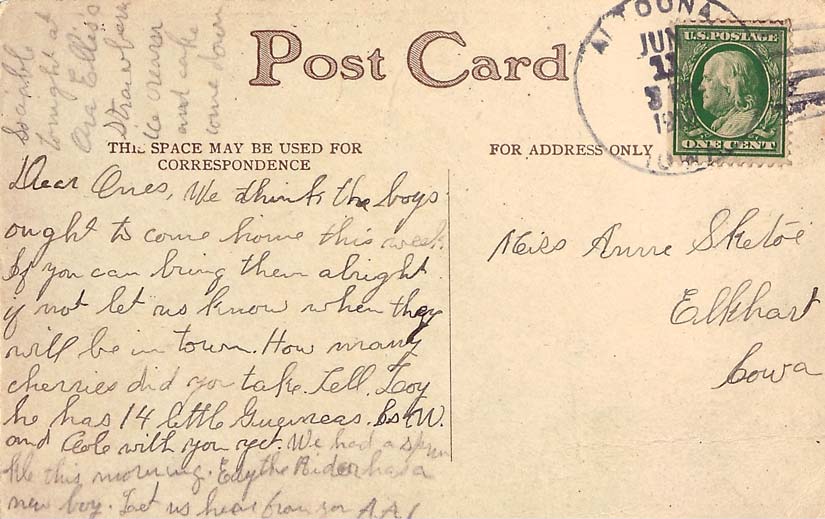 Post Card
THIS SPACE MAY BE USED FOR
CORRESPONDENCE
FOR ADDRESS ONLY
ALTOONA
JUN
11
IOWA
U.S. POSTAGE
ONE CENT
Sociable
tonight at
Ora Ellis's
Strawberry
Ice cream
and cake
come down
Dear Ones, We think the boys
ought to come home this week
If you can bring them alright
if not let us know when they
will be in town. How many
cherries did you take. Tell
he has 14 little Guineas. Is W.
and with you yet. We had a sprin
kle this morning. Edythe Rider has a
new boy. Let us hear from you
Miss Anne Sketoe
Elkhart
Iowa